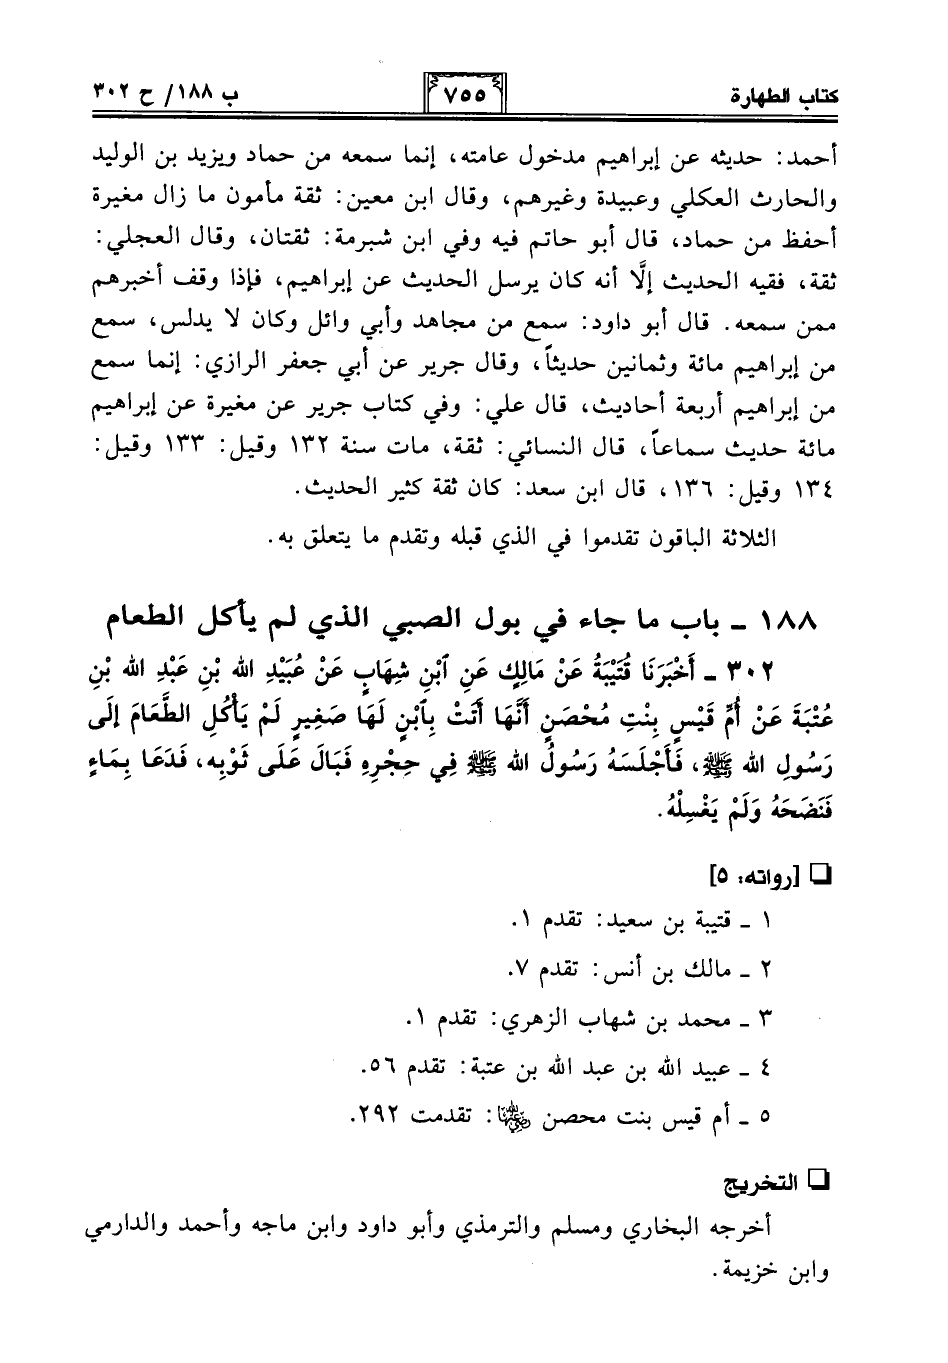 كتاب الطهارة ٧٥٥ ب ١٨٨/ ح ٣٠٢
أحمد: حديثه عن إبراهيم مدخول عامته، إنما سمعه من حماد ويزيد بن الوليد
والحارث العكلي وعبيدة وغيرهم، وقال ابن معين: ثقة مأمون ما زال مغيرة
أحفظ من حماد، قال أبو حاتم فيه وفي ابن شبرمة: ثقتان، وقال العجلي:
ثقة، فقيه الحديث إلَّا أنه كان يرسل الحديث عن إبراهيم، فإذا وقف أخبرهم
ممن سمعه. قال أبو داود: سمع من مجاهد وأبي وائل وكان لا يدلس، سمع
من إبراهيم مائة وثمانين حديثاً، وقال جرير عن أبي جعفر الرازي: إنما سمع
من إبراهيم أربعة أحاديث، قال علي: وفي كتاب جرير عن مغيرة عن إبراهيم
مائة حديث سماعاً، قال النسائي: ثقة، مات سنة ١٣٢ وقيل: ١٣٣ وقيل:
١٣٤ وقيل: ١٣٦، قال ابن سعد: كان ثقة كثير الحديث.
الثلاثة الباقون تقدموا في الذي قبله وتقدم ما يتعلق به.
١٨٨ ـ باب ما جاء في بول الصبي الذي لم يأكل الطعام
٣٠٢ ـ أَخْبَرَنَا قُتَيْبَةُ عَنْ مَالِكٍ عَنِ ٱبْنِ شِهَابٍ عَنْ عُبَيْدِ الله بْنِ عَبْدِ الله بْنِ
عُتْبَةَ عَنْ أُمِّ قَيْسٍ بِنْتِ مُحْصَنٍ أَنَّهَا أَتَتْ بِٱبْنٍ لَهَا صَغِيرٍ لَمْ يَأْكُلِ الطَّعَامَ إِلَى
رَسُولِ الله ﷺ، فَأَجْلَسَهُ رَسُولُ الله ﷺ فِي حِجْرِهِ فَبَالَ عَلَى ثَوْبِه، فَدَعَا بِمَاءٍ
فَنَضَحَهُ وَلَمْ يَغْسِلْهُ.
❑ [رواته: ٥]
١ ـ قتيبة بن سعيد: تقدم ١.
٢ ـ مالك بن أنس: تقدم ٧.
٣ ـ محمد بن شهاب الزهري: تقدم ١.
٤ ـ عبيد الله بن عبد الله بن عتبة: تقدم ٥٦.
٥ ـ أم قيس بنت محصن رضي الله عنها: تقدمت ٢٩٢.
❑ التخريج
أخرجه البخاري ومسلم والترمذي وأبو داود وابن ماجه وأحمد والدارمي
وابن خزيمة.